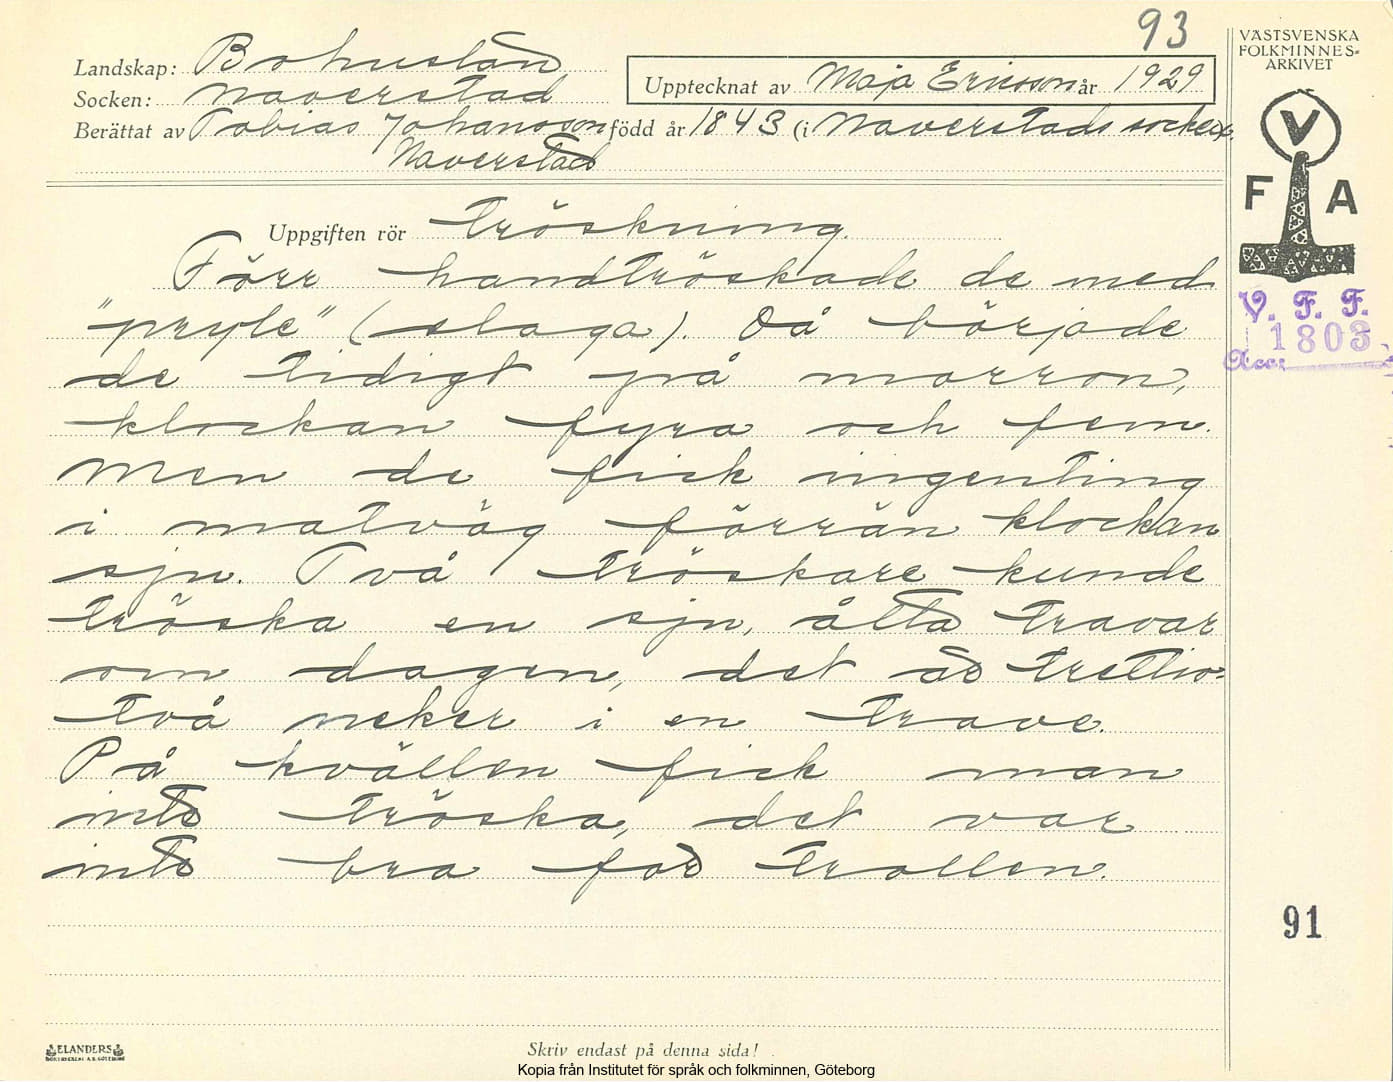 93
Landskap: Bohuslän
Socken: Naverstad
Upptecknat av Maja Ericsson år 1929
Berättat av Tobias Johansson född år 1843 (i Naverstads socken)
Naverstad
VÄSTSVENSKA
FOLKMINNES-
ARKIVET
V
F A
V. F. F.
1803
Acc:
Uppgiften rör tröskning.
Förr handtröskade de med
"pryle" (slaga). Då började
de tidigt på morron,
klockan fyra och fem.
Men de fick ingenting
i matväg förrän klockan
sju. Två tröskare kunde
tröska en sju, åtta travar
om dagen, det är trettio-
två neker i en trave.
På kvällen fick man
inte tröska, det var
inte bra för trollen.
91
ELANDERS
BOKTRYCKERI A.B. GÖTEBORG
Skriv endast på denna sida!
Kopia från Institutet för språk och folkminnen, Göteborg